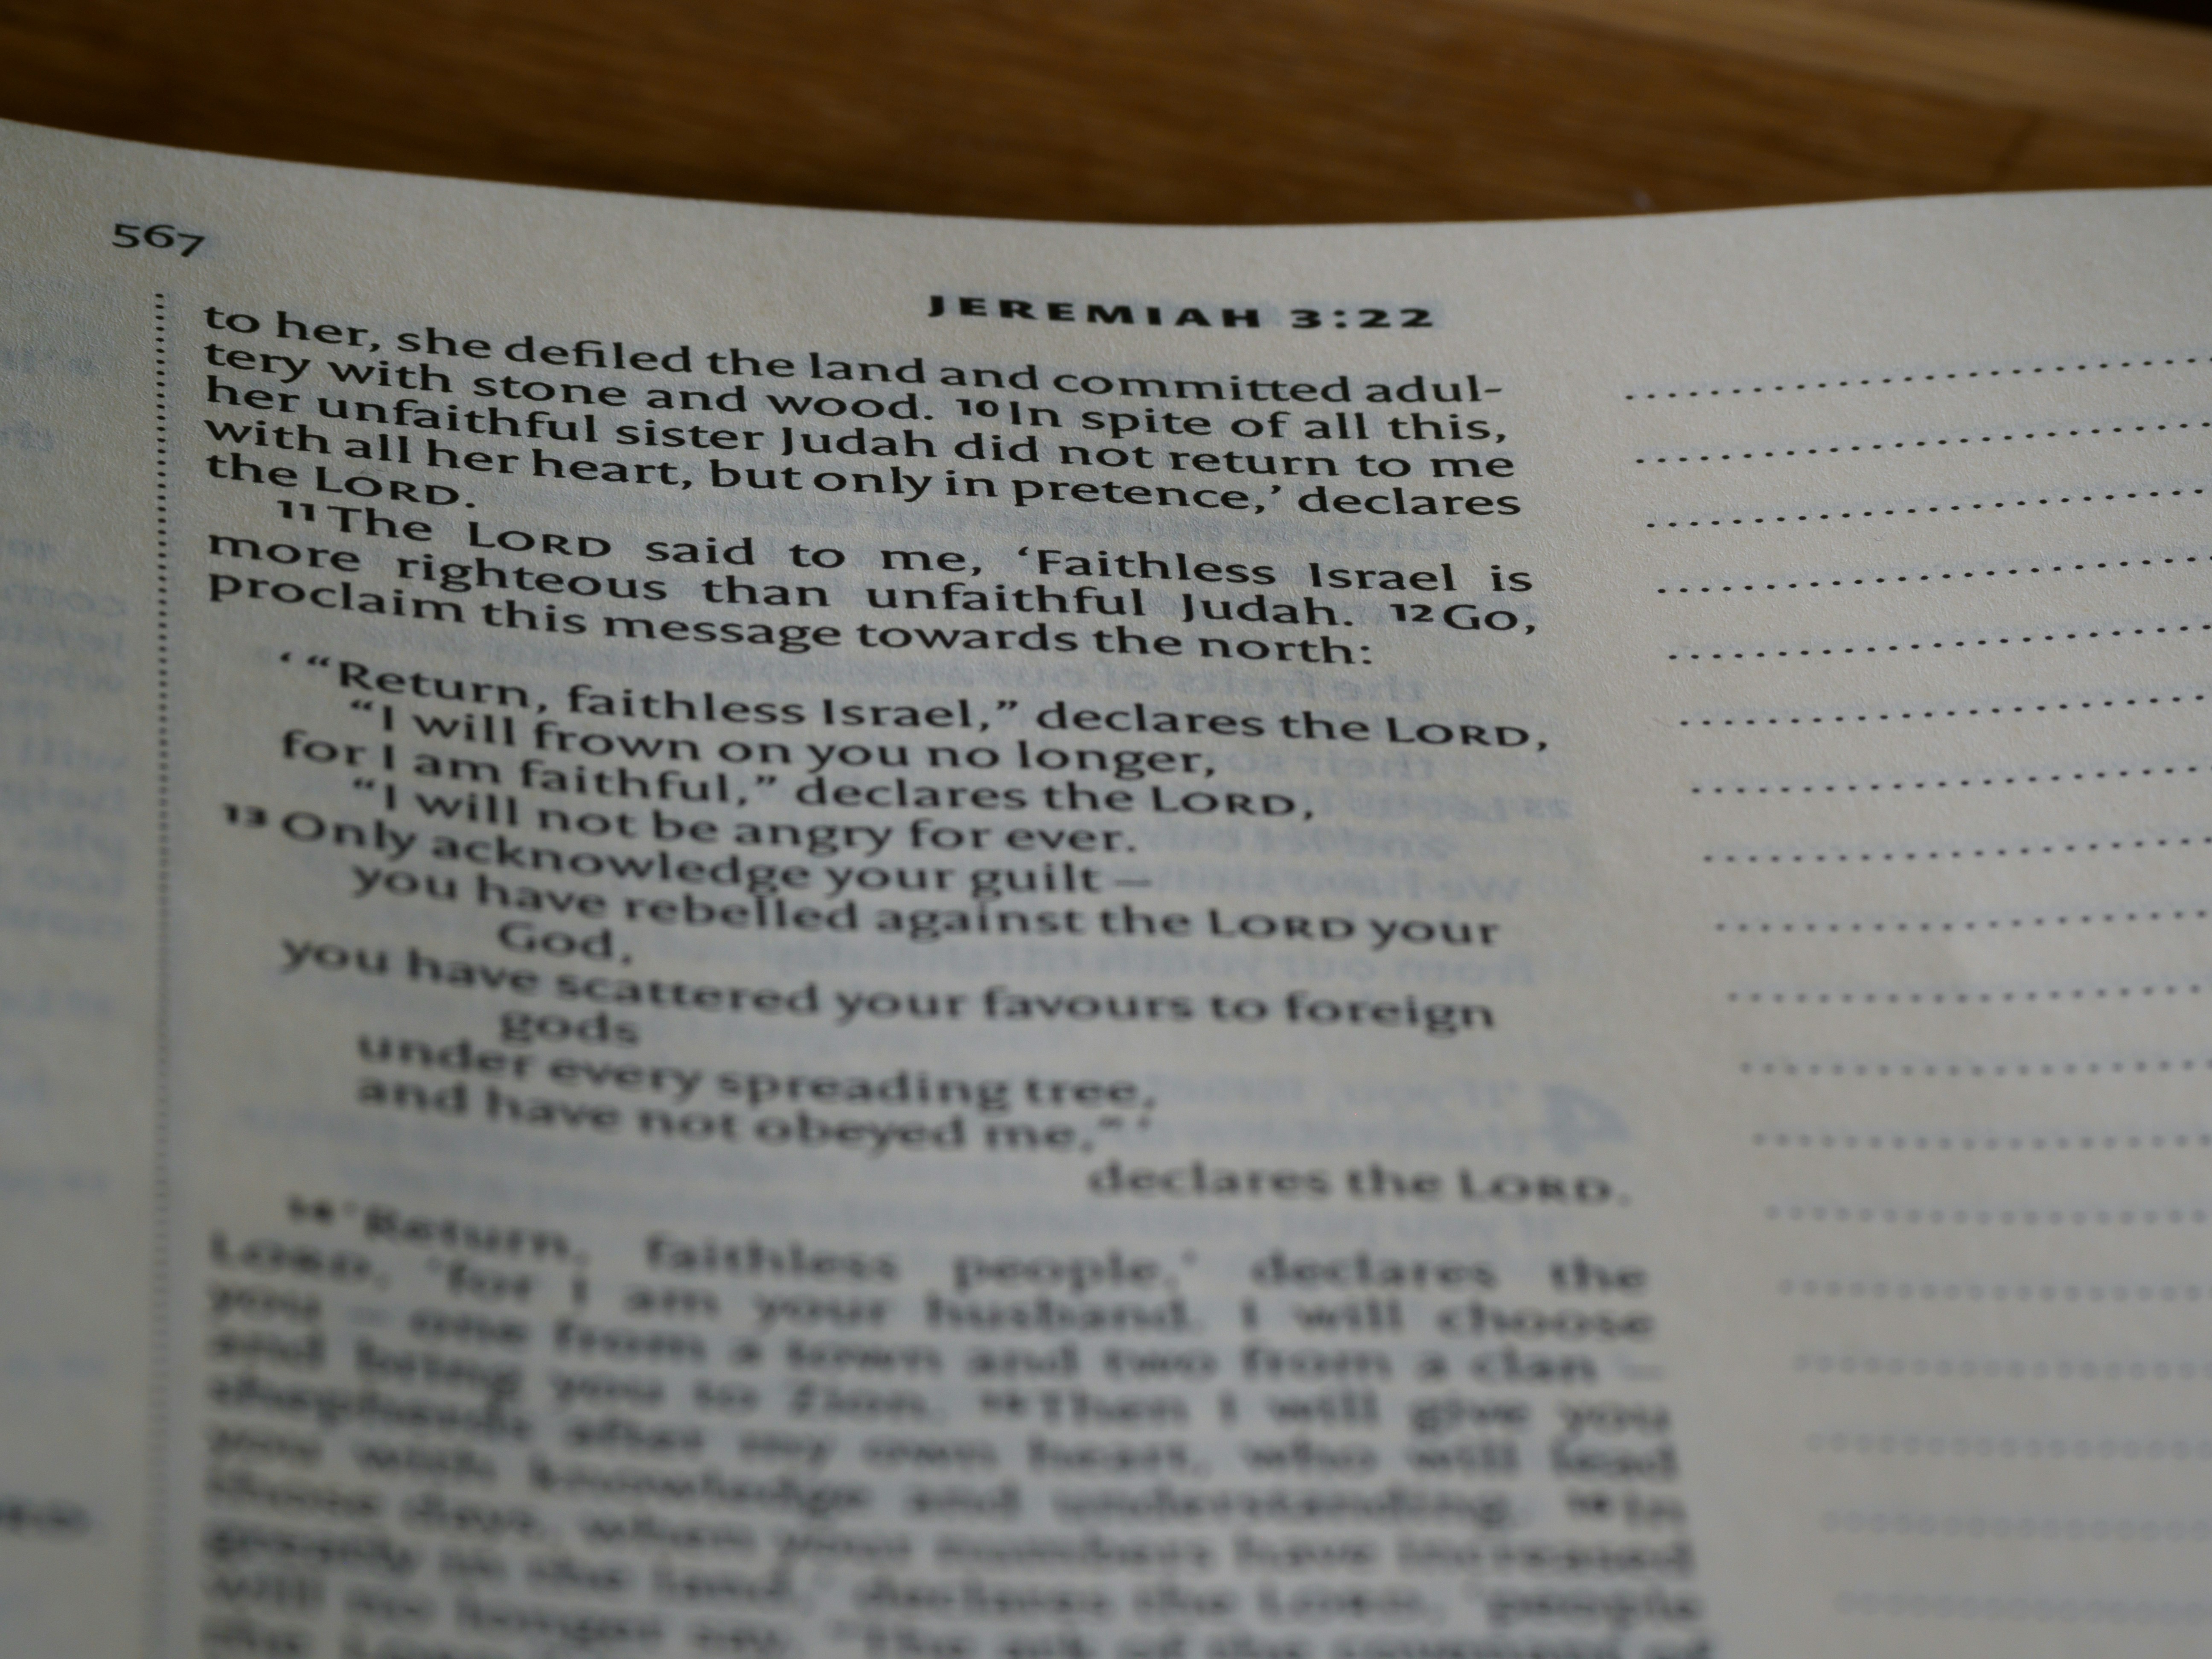 567
JEREMIAH 3:22
to her, she defiled the land and committed adul-
tery with stone and wood. 10 In spite of all this,
her unfaithful sister Judah did not return to me
with all her heart, but only in pretence,’ declares
the LORD.
11 The LORD said to me, ‘Faithless Israel is
more righteous than unfaithful Judah. 12 Go,
proclaim this message towards the north:
‘ “Return, faithless Israel,” declares the LORD,
“I will frown on you no longer,
for I am faithful,” declares the LORD,
“I will not be angry for ever.
13 Only acknowledge your guilt –
you have rebelled against the LORD your
God,
you have scattered your favours to foreign
gods
under every spreading tree,
and have not obeyed me,” ’
declares the LORD.
14 ‘Return, faithless people,’ declares the
LORD, ‘for I am your husband. I will choose
you – one from a town and two from a clan –
and bring you to Zion. 15 Then I will give you
shepherds after my own heart, who will lead
you with knowledge and understanding. 16 In
those days, when your numbers have increased
greatly in the land,’ declares the LORD, ‘people
will no longer say, “The ark of the covenant of
the LORD